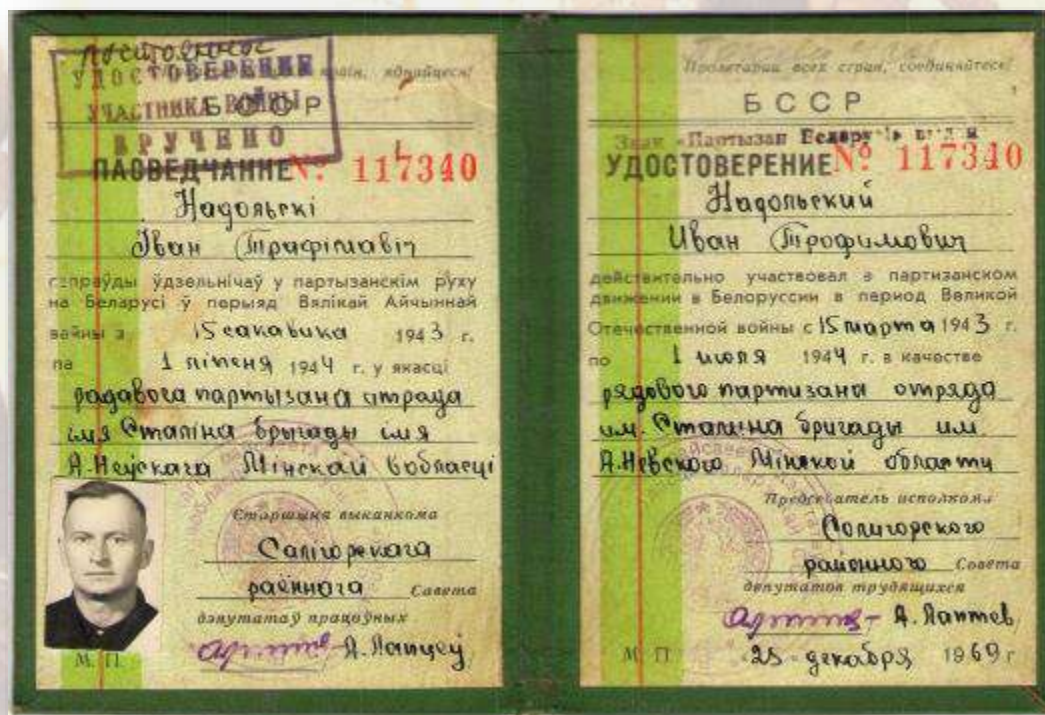 постоянное
УДОСТОВЕРЕНИЕ
УЧАСТНИКА ВОЙНЫ
ВРУЧЕНО
краін, яднайцеся!
БССР
ПАСВЕДЧАННЕ № 117340
Надольскі
Іван Трафімавіч
сапраўды ўдзельнічаў у партызанскім руху
на Беларусі ў перыяд Вялікай Айчыннай
вайны з 15 сакавіка 1943 г.
па 1 ліпеня 1944 г. у якасці
радавога партызана атрада
імя Сталіна брыгады імя
А. Неўскага Мінскай вобласці
Старшыня выканкома
Салігорскага
раённага Савета
дэпутатаў працоўных
А. Лапцеў
М. П.
Пролетарии всех стран, соединяйтесь!
БССР
Знак «Партызан Беларусі»
УДОСТОВЕРЕНИЕ № 117340
Надольский
Иван Трофимович
действительно участвовал в партизанском
движении в Белоруссии в период Великой
Отечественной войны с 15 марта 1943 г.
по 1 июля 1944 г. в качестве
рядового партизана отряда
им. Сталина бригады им.
А. Невского Минской области
Председатель исполкома
Солигорского
районного Совета
депутатов трудящихся
А. Лаптев
М. П. 25 декабря 1969 г